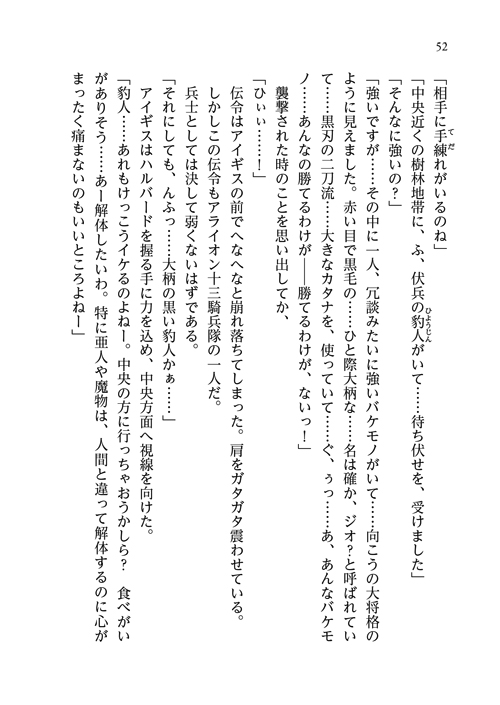 52
「相手に手練れがいるのね」
「中央近くの樹林地帯に、ふ、伏兵の豹人がいて……待ち伏せを、受けました」
「そんなに強いの？」
「強いですが……その中に一人、冗談みたいに強いバケモノがいて……向こうの大将格の
ように見えました。赤い目で黒毛の……ひと際大柄な……名は確か、ジオ？と呼ばれてい
て……黒刃の二刀流……大きなカタナを、使っていて……ぐ、ぅっ……あ、あんなバケモ
ノ……あんなの勝てるわけが――勝てるわけが、ないっ！」
襲撃された時のことを思い出してか、
「ひぃぃ……！」
伝令はアイギスの前でへなへなと崩れ落ちてしまった。肩をガタガタ震わせている。
しかしこの伝令もアライオン十三騎兵隊の一人だ。
兵士としては決して弱くないはずである。
「それにしても、んふっ……大柄の黒い豹人かぁ……」
アイギスはハルバードを握る手に力を込め、中央方面へ視線を向けた。
「豹人……あれもけっこうイケるのよねー。中央の方に行っちゃおうかしら？　食べがい
がありそう……あー解体したいわ。特に亜人や魔物は、人間と違って解体するのに心が
まったく痛まないのもいいところよねー」